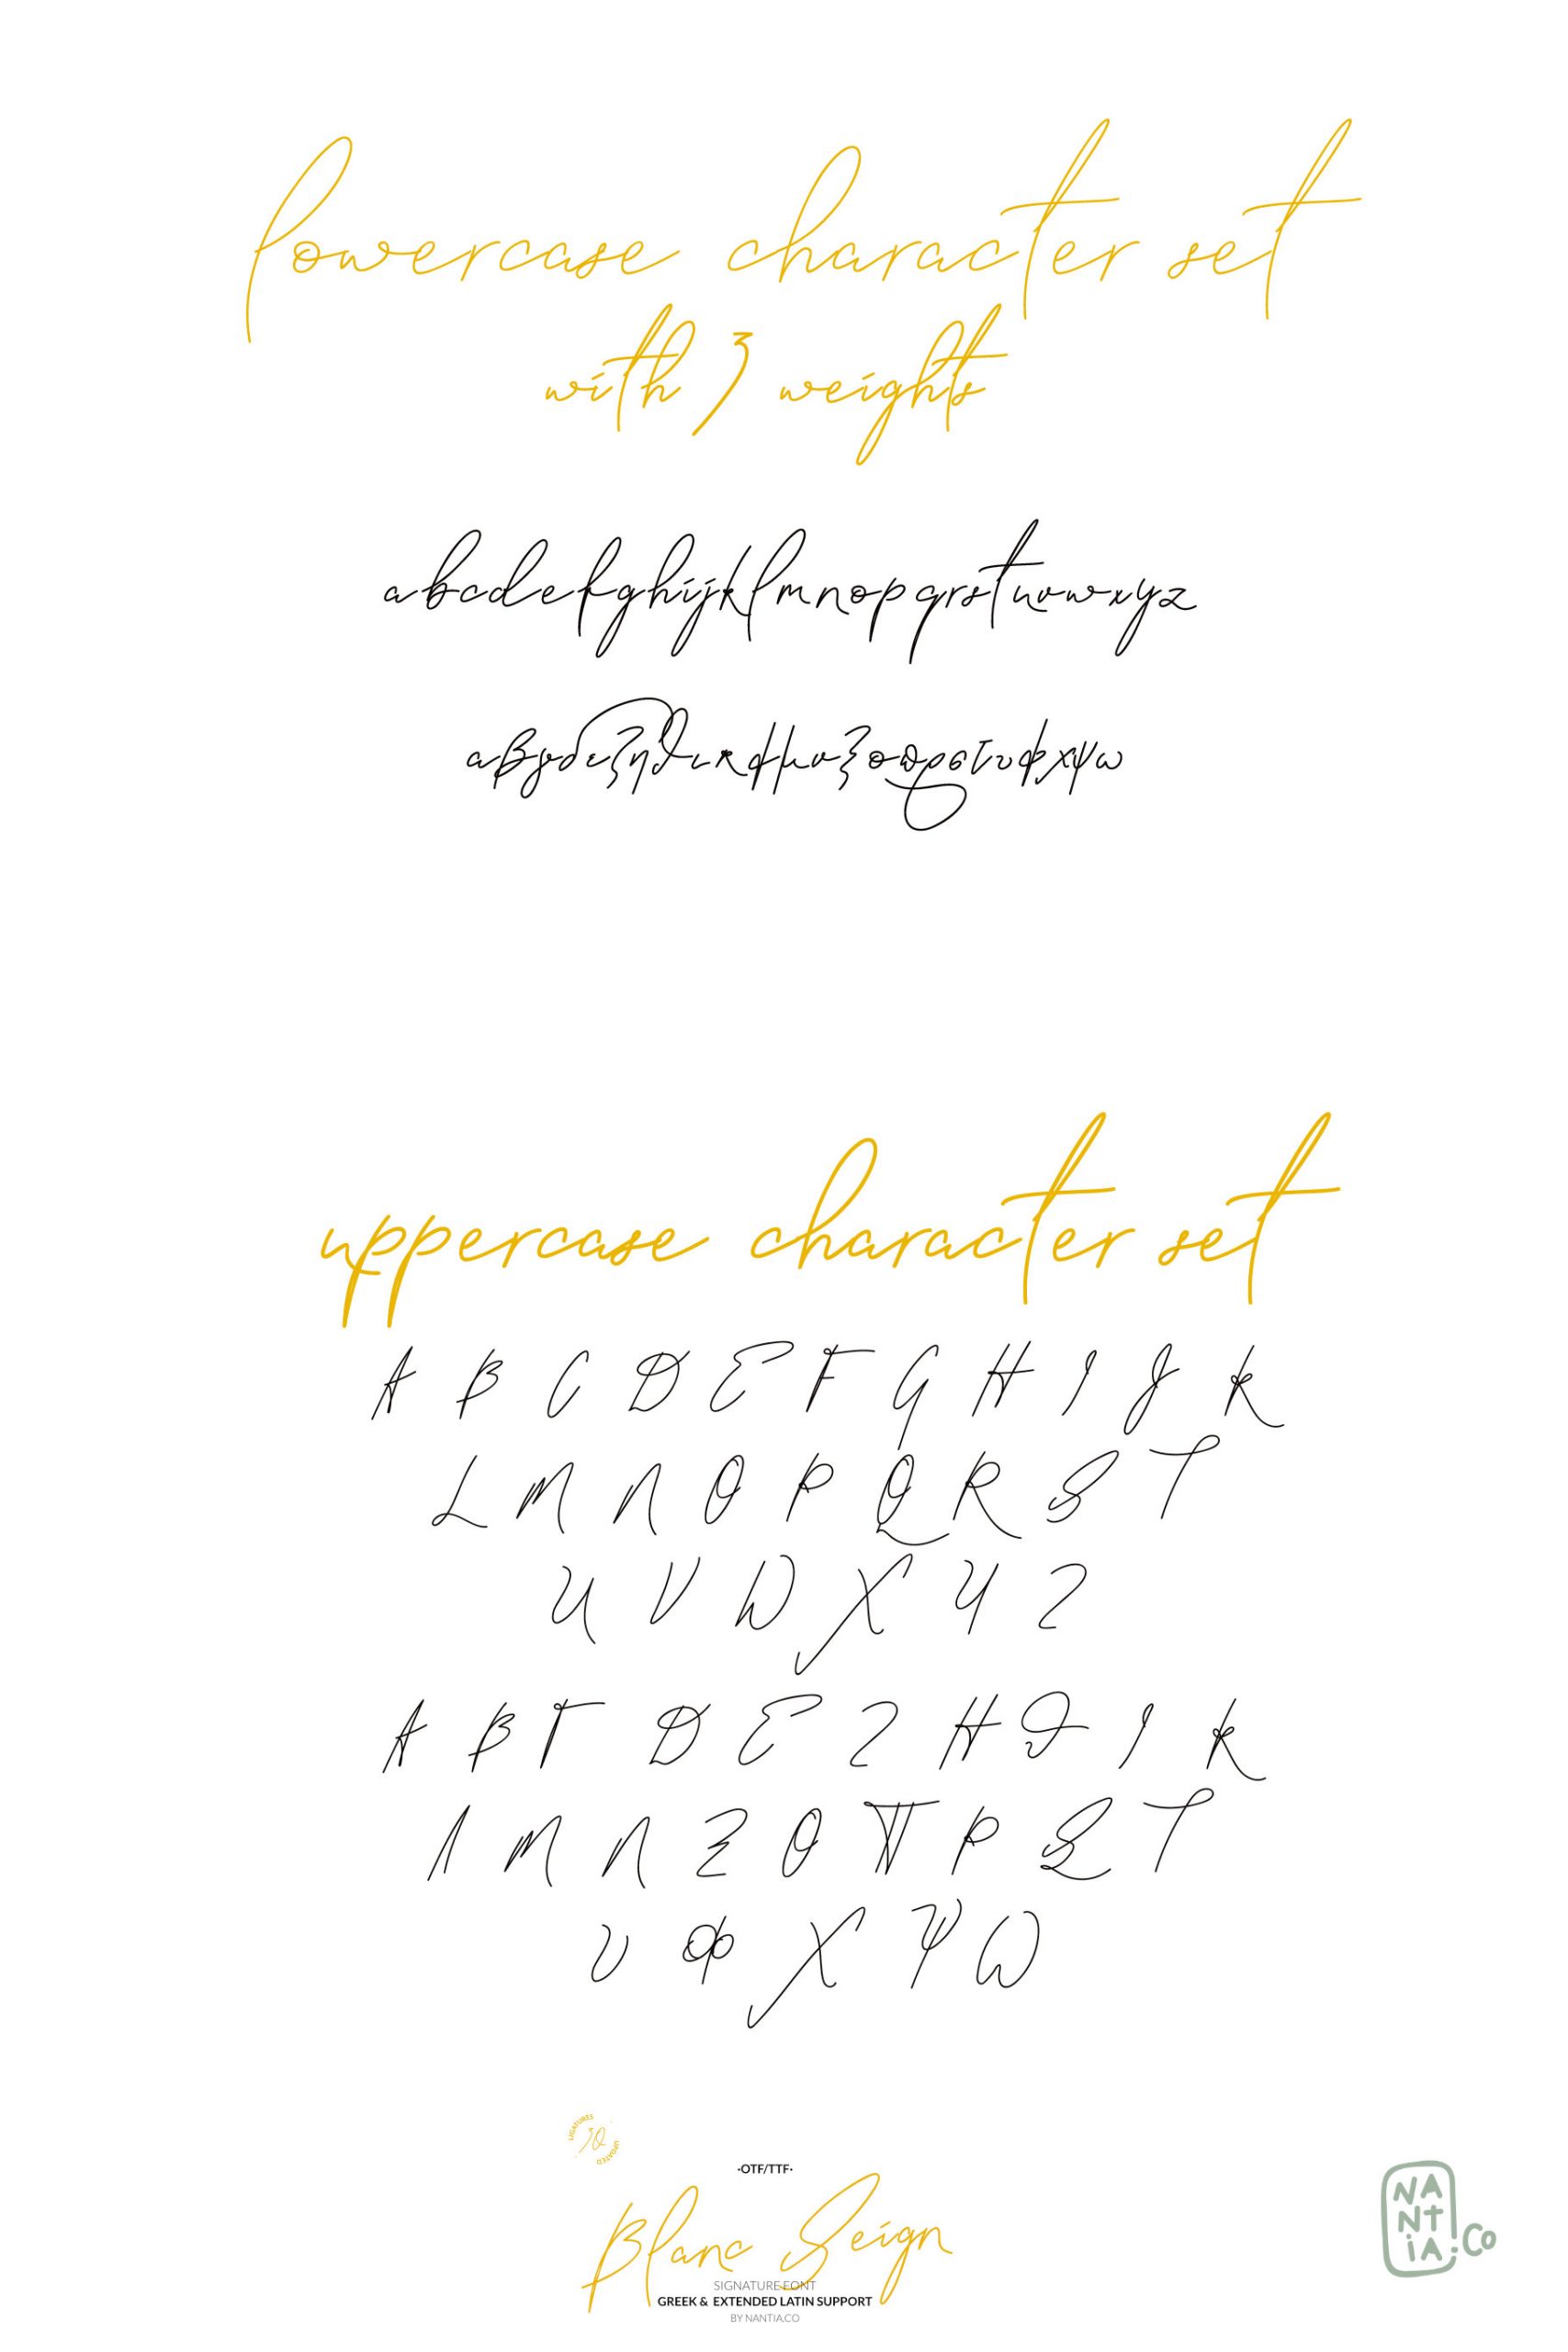 lowercase character set
with 3 weights
abcdefghijklmnopqrstuvwxyz
αβγδεζηθικλμνξοπρστυφχψω
uppercase character set
A B C D E F G H I J K
L M N O P Q R S T
U V W X Y Z
Α Β Γ Δ Ε Ζ Η Θ Ι Κ
Λ Μ Ν Ξ Ο Π Ρ Σ Τ
Υ Φ Χ Ψ Ω
LIGATURES
30
UPDATED
·OTF/TTF·
Blanc Seign
SIGNATURE FONT
GREEK & EXTENDED LATIN SUPPORT
BY NANTIA.CO
NANtiA.Co